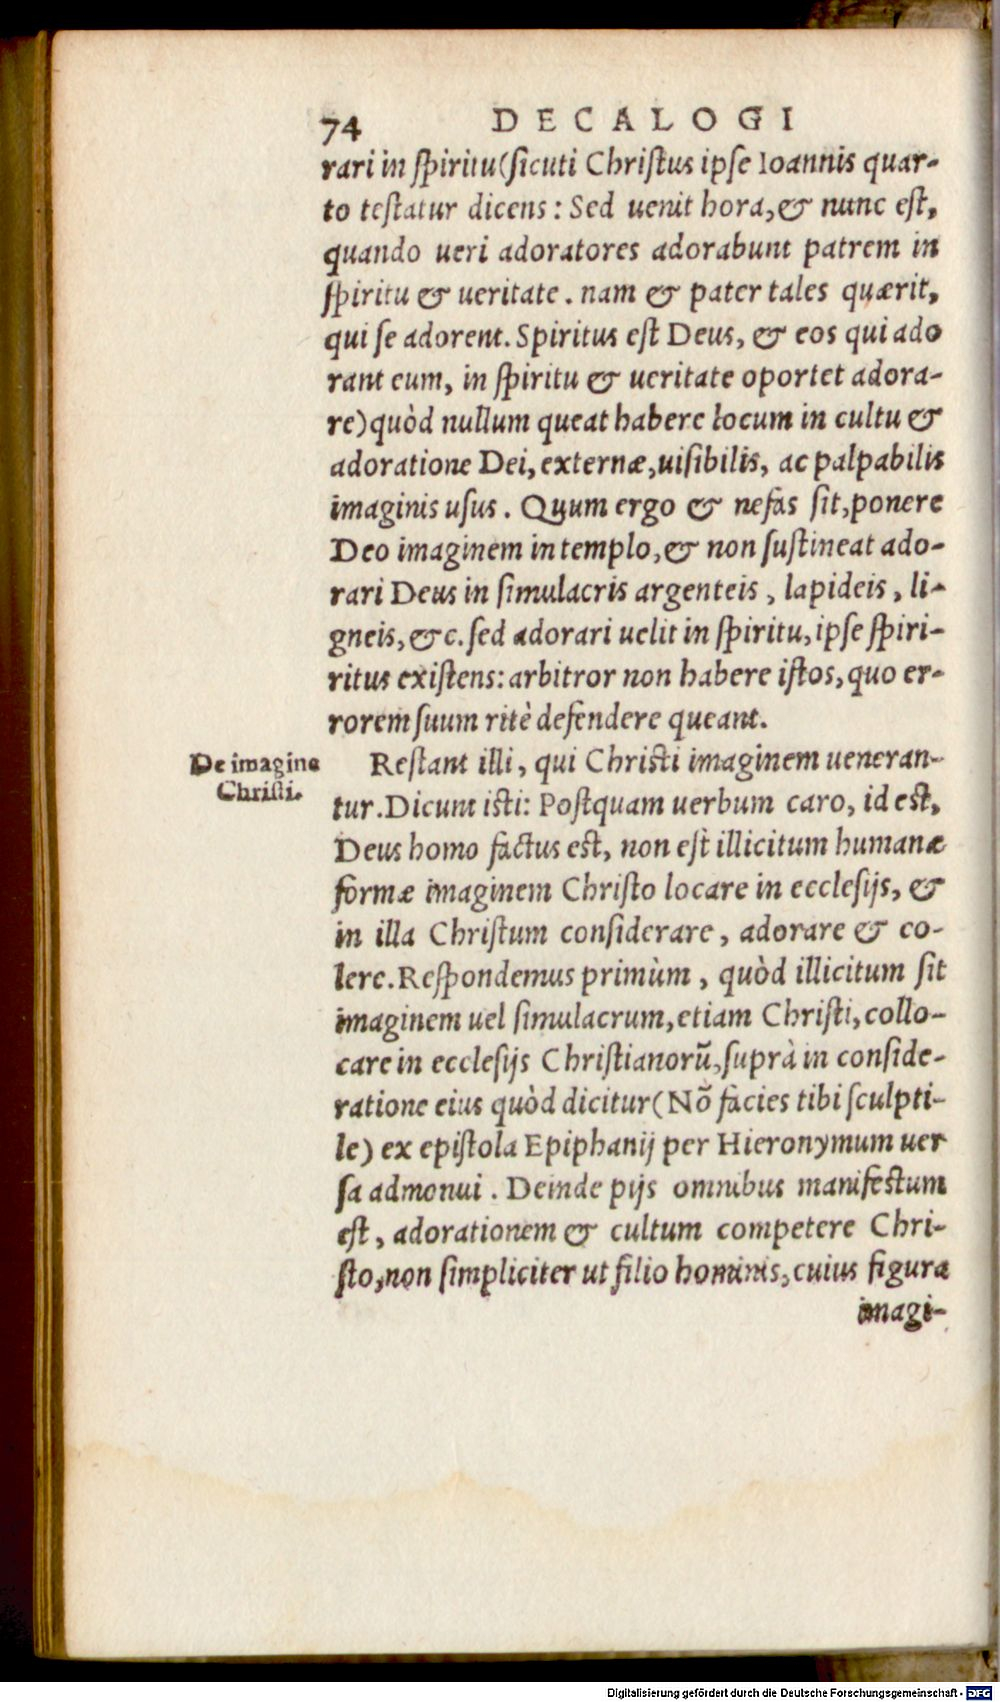 74 DECALOGI
rari in spiritu (sicuti Christus ipse Ioannis quar-
to testatur dicens: Sed uenit hora, & nunc est,
quando ueri adoratores adorabunt patrem in
spiritu & ueritate. nam & pater tales quærit,
qui se adorent. Spiritus est Deus, & eos qui ado
rant eum, in spiritu & ueritate oportet adora-
re) quòd nullum queat habere locum in cultu &
adoratione Dei, externæ, uisibilis, ac palpabilis
imaginis usus. Quum ergo & nefas sit, ponere
Deo imaginem in templo, & non sustineat ado-
rari Deus in simulacris argenteis, lapideis, li-
gneis, &c. sed adorari uelit in spiritu, ipse spiri-
ritus existens: arbitror non habere istos, quo er-
rorem suum ritè defendere queant.
De imagine
Christi.
Restant illi, qui Christi imaginem ueneran-
tur. Dicunt isti: Postquam uerbum caro, id est,
Deus homo factus est, non est illicitum humanæ
formæ imaginem Christo locare in ecclesijs, &
in illa Christum considerare, adorare & co-
lere. Respondemus primùm, quòd illicitum sit
imaginem uel simulacrum, etiam Christi, collo-
care in ecclesijs Christianorũ, suprà in conside-
ratione eius quòd dicitur (Nõ facies tibi sculpti-
le) ex epistola Epiphanij per Hieronymum uer
sa admonui. Deinde pijs omnibus manifestum
est, adorationem & cultum competere Chri-
sto, non simpliciter ut filio hominis, cuius figura
imagi-
Digitalisierung gefördert durch die Deutsche Forschungsgemeinschaft - DFG